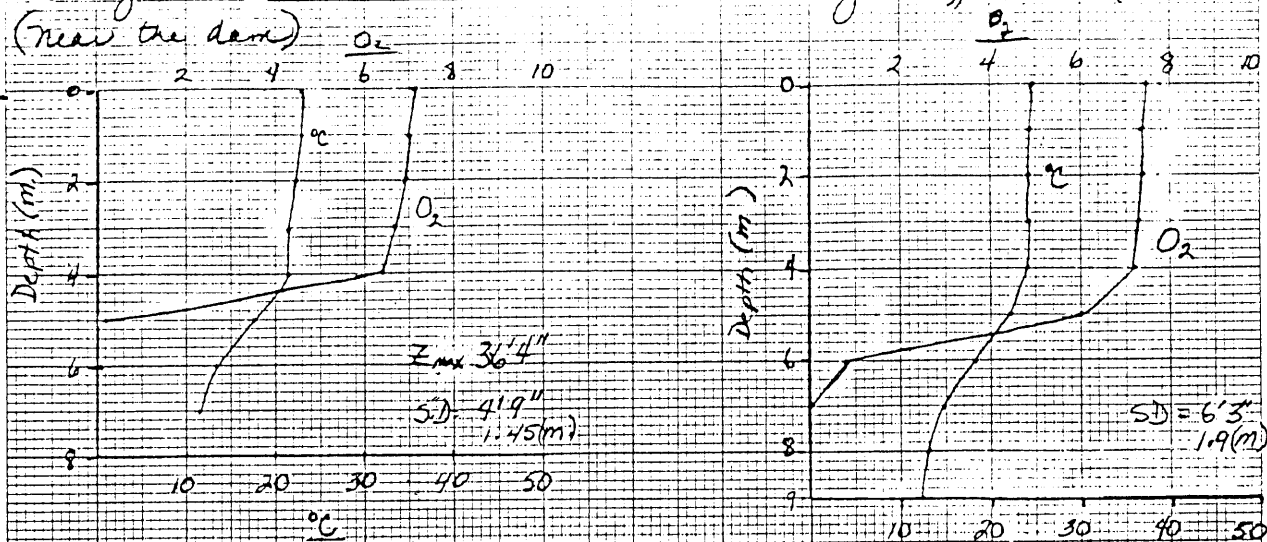 (near the dam)
O₂
2 4 6 8 10
0
2
4
6
8
Depth (m.)
°C
O₂
Zmax 36'4"
SD = 4'9"
1.45(m)
10 20 30 40 50
°C
O₂
2 4 6 8 10
0
2
4
6
8
9
Depth (m)
°C
O₂
SD = 6'3"
1.9(m)
10 20 30 40 50